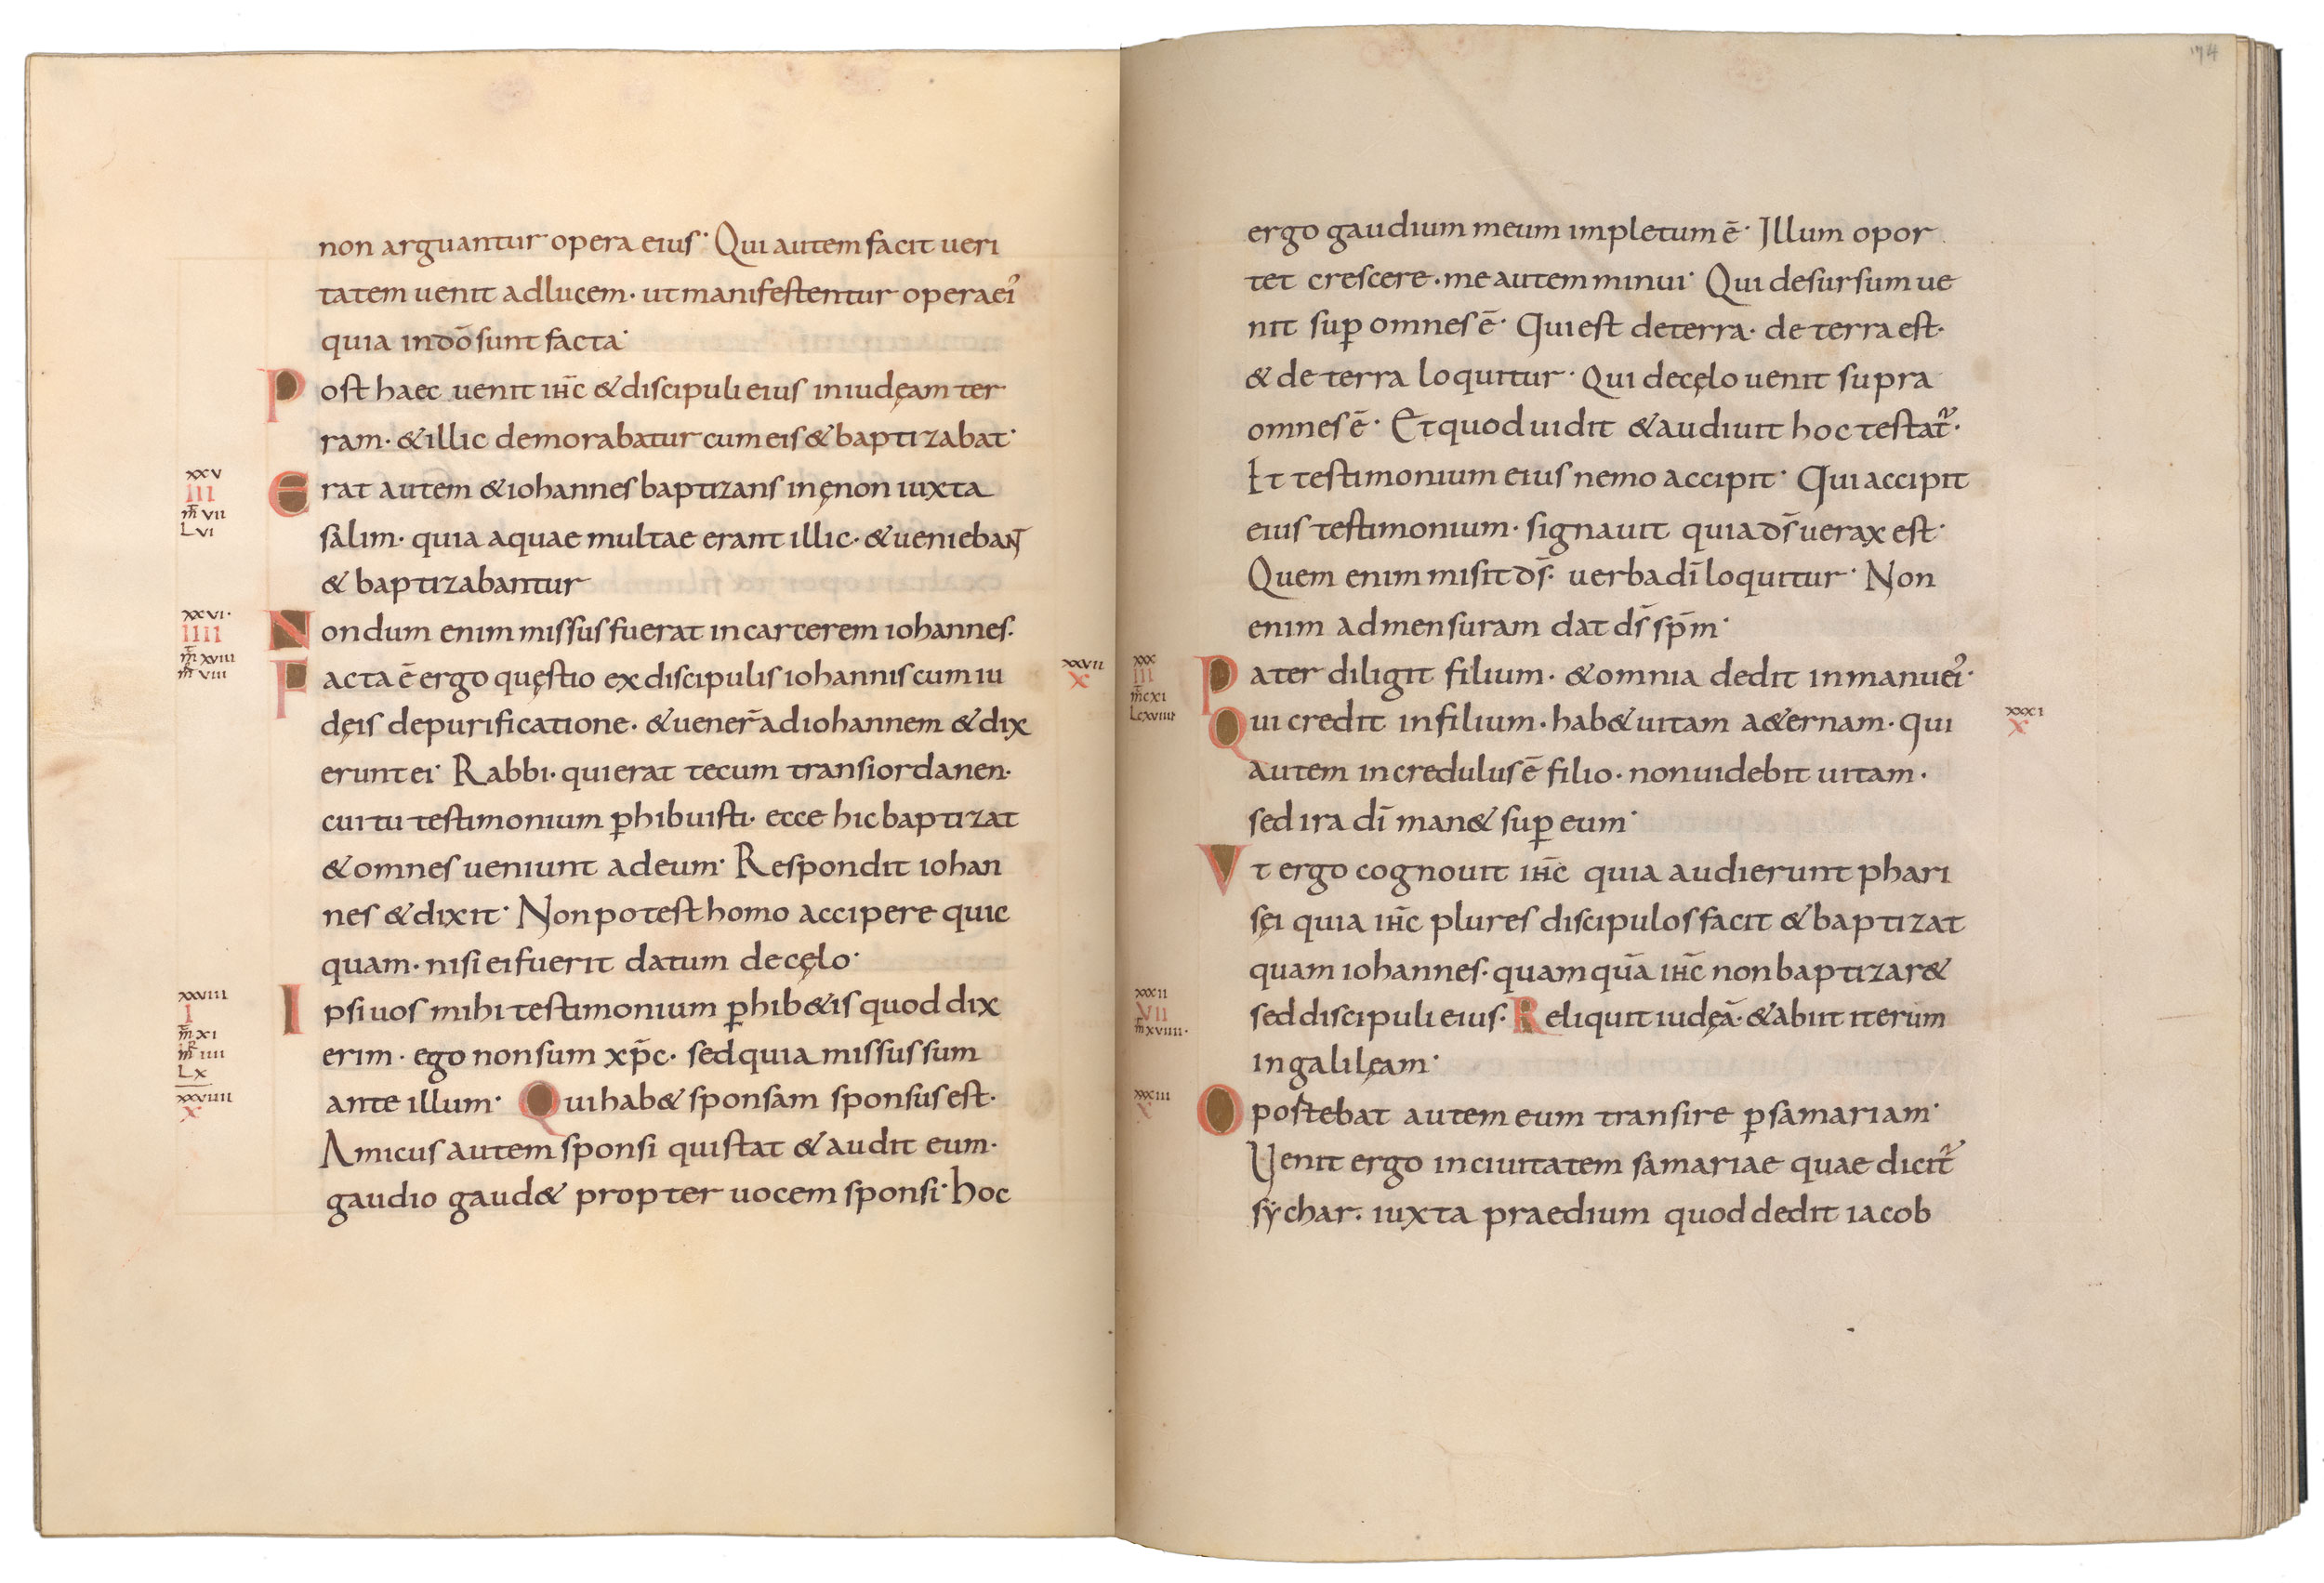 non arguantur opera eius· Qui autem facit ueri
tatem uenit ad lucem· ut manifestentur opera ei᾽
quia in dō sunt facta·
Post haec uenit ihc̄ & discipuli eius in iudęam ter
ram· & illic demorabatur cum eis & baptizabat·
xxv
III
m̄ vii
L vi
Erat autem & iohannes baptizans in ęnon iuxta
salim· quia aquae multae erant illic· & ueniebant
& baptizabantur
xxvi·
IIII
m̄ xviii
m̄ viii
Nondum enim missus fuerat in carcerem iohannes·
xxvii
X
Facta ē ergo quęstio ex discipulis iohannis cum iu
dęis de purificatione· & uener̄ ad iohannem & dix
erunt ei· Rabbi· qui erat tecum trans iordanen·
cui tu testimonium ꝑhibuisti· ecce hic baptizat
& omnes ueniunt ad eum· Respondit iohan
nes & dixit· Non potest homo accipere quic
quam· nisi ei fuerit datum de cęlo·
xxviii
I
m̄ xi
m̄ iiii
L x
Ipsi uos mihi testimonium ꝑhib&is quod dix
erim· ego non sum xp̄c· sed quia missus sum
xxviiii
X
ante illum· Qui hab& sponsam sponsus est·
Amicus autem sponsi qui stat & audit eum·
gaudio gaud& propter uocem sponsi· hoc
74
ergo gaudium meum impletum ē· Illum opor
tet crescere· me autem minui· Qui desursum ue
nit suꝑ omnes ē· Qui est de terra· de terra est·
& de terra loquitur· Qui de cęlo uenit supra
omnes ē· Et quod uidit & audiuit hoc testat᷑·
Et testimonium eius nemo accipit· Qui accipit
eius testimonium· signauit quia ds̄ uerax est·
Quem enim misit ds̄· uerba dī loquitur· Non
enim ad mensuram dat ds̄ sp̄m·
xxx
III
m̄ cxi
Lcxviiii
Pater diligit filium· & omnia dedit in manu ei᾽·
xxxi
X
Qui credit in filium· hab& uitam a&ernam· qui
autem incredulus ē filio· non uidebit uitam·
sed ira dī man& suꝑ eum·
Vt ergo cognouit ihc̄ quia audierunt phari
sęi quia ihc̄ plures discipulos facit & baptizat
quam iohannes· quamquā ihc̄ non baptizar&
xxxii
VII
m̄ xviiii·
sed discipuli eius· Reliquit iudęā· & abiit iterum
in galilęam·
xxxiii
X
Oportebat autem eum transire ꝑ samariam·
Venit ergo in ciuitatem samariae quae dicit᷑
sẏchar· iuxta praedium quod dedit iacob